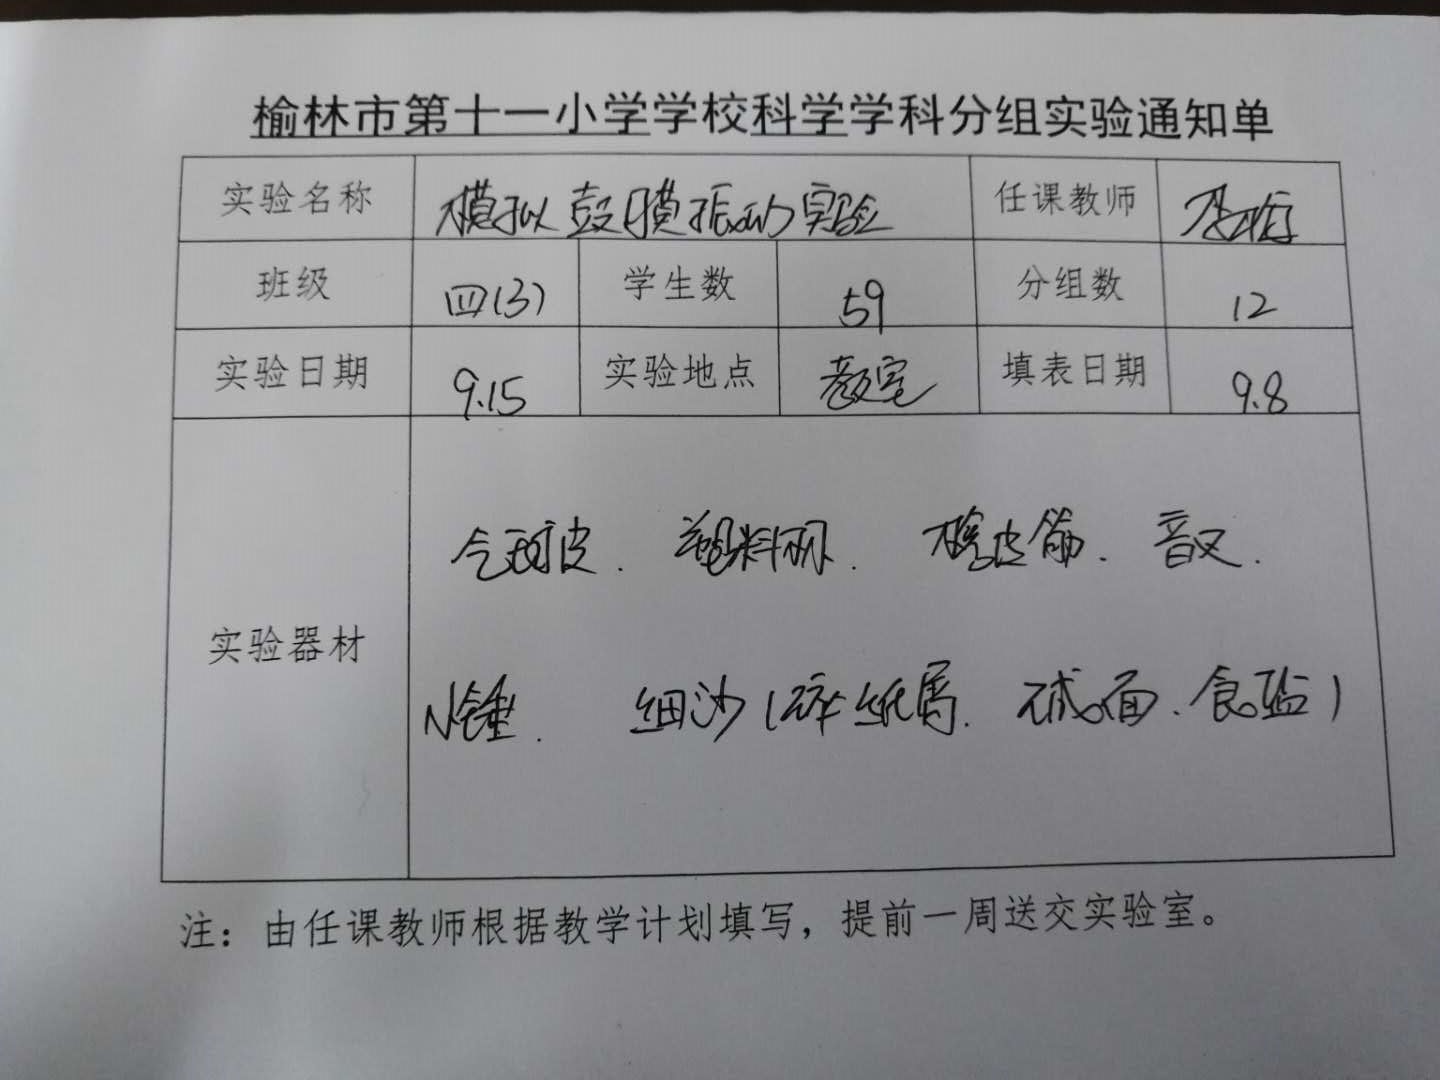 榆林市第十一小学学校科学学科分组实验通知单
实验名称 模拟鼓膜振动实验 任课教师
班级 四(3) 学生数 59 分组数 12
实验日期 9.15 实验地点 教室 填表日期 9.8
实验器材
气球皮. 塑料瓶. 橡皮筋. 音叉.
小锤. 细沙(碎纸屑. 碱面. 食盐)
注：由任课教师根据教学计划填写，提前一周送交实验室。